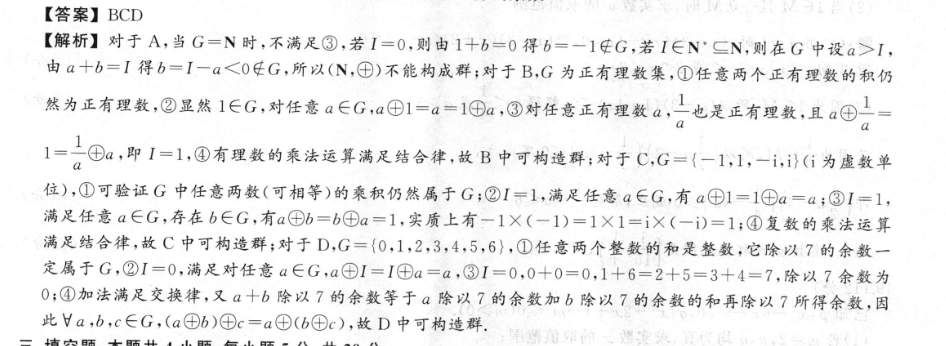 【答案】BCD
【解析】对于 A,当 G=N 时,不满足③,若 I=0,则由 1+b=0 得 b=-1∉G,若 I∈N*⊆N,则在 G 中设 a>I,
由 a+b=I 得 b=I-a<0∉G,所以(N,⊕)不能构成群;对于 B,G 为正有理数集,①任意两个正有理数的积仍
然为正有理数,②显然 1∈G,对任意 a∈G,a⊕1=a=1⊕a,③对任意正有理数 a,1/a也是正有理数,且 a⊕1/a=
1=1/a⊕a,即 I=1,④有理数的乘法运算满足结合律,故 B 中可构造群;对于 C,G={-1,1,-i,i}(i 为虚数单
位),①可验证 G 中任意两数(可相等)的乘积仍然属于 G;②I=1,满足任意 a∈G,有 a⊕1=1⊕a=a;③I=1,
满足任意 a∈G,存在 b∈G,有a⊕b=b⊕a=1,实质上有-1×(-1)=1×1=i×(-i)=1;④复数的乘法运算
满足结合律,故 C 中可构造群;对于 D,G={0,1,2,3,4,5,6},①任意两个整数的和是整数,它除以 7 的余数一
定属于 G,②I=0,满足对任意 a∈G,a⊕I=I⊕a=a,③I=0,0+0=0,1+6=2+5=3+4=7,除以 7 余数为
0;④加法满足交换律,又 a+b 除以 7 的余数等于 a 除以 7 的余数加 b 除以 7 的余数的和再除以 7 所得余数,因
此∀a,b,c∈G,(a⊕b)⊕c=a⊕(b⊕c),故 D 中可构造群.